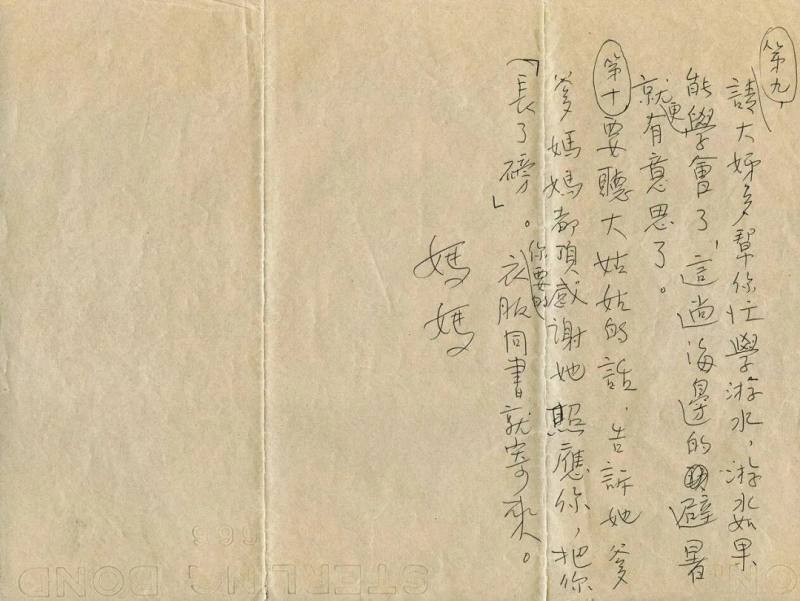 第九，
請大姊多幫你忙學游水，游水如果
能學會了，這趟海邊的避暑
就更有意思了。
第十，要聽大姑姑的話，告訴她爹
爹媽媽都頂感謝她照應你，把你
「長了磅」。你要的衣服同書就寄來。
媽媽
STERLING BOND